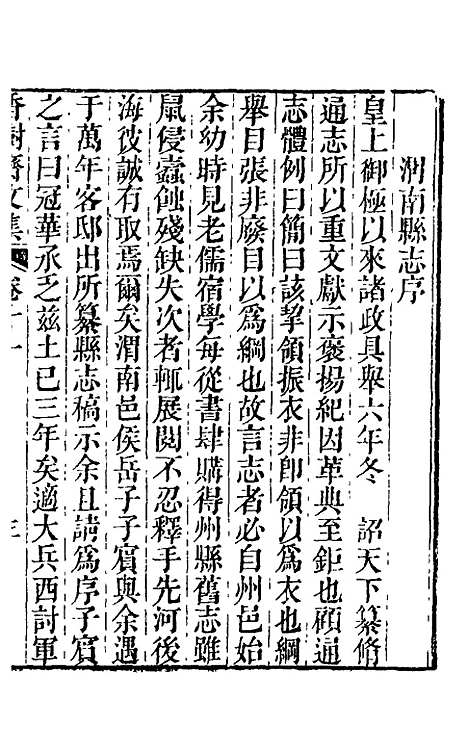 渭南縣志序
皇上御極以來諸政具舉六年冬　詔天下纂脩
通志所以重文獻示褒揚紀因革典至鉅也顧通
志體例曰簡曰該挈領振衣非卽領以爲衣也綱
舉目張非廢目以爲綱也故言志者必自州邑始
余幼時見老儒宿學每從書肆購得州縣舊志雖
鼠侵蠧蝕殘缺失次者輒展閱不忍釋手先河後
海彼誠有取焉爾矣渭南邑侯岳子子賓與余遇
于萬年客邸出所纂縣志稿示余且請爲序子賓
之言曰冠華承乏兹土已三年矣適大兵西討軍
香樹齋文集　卷十一　三